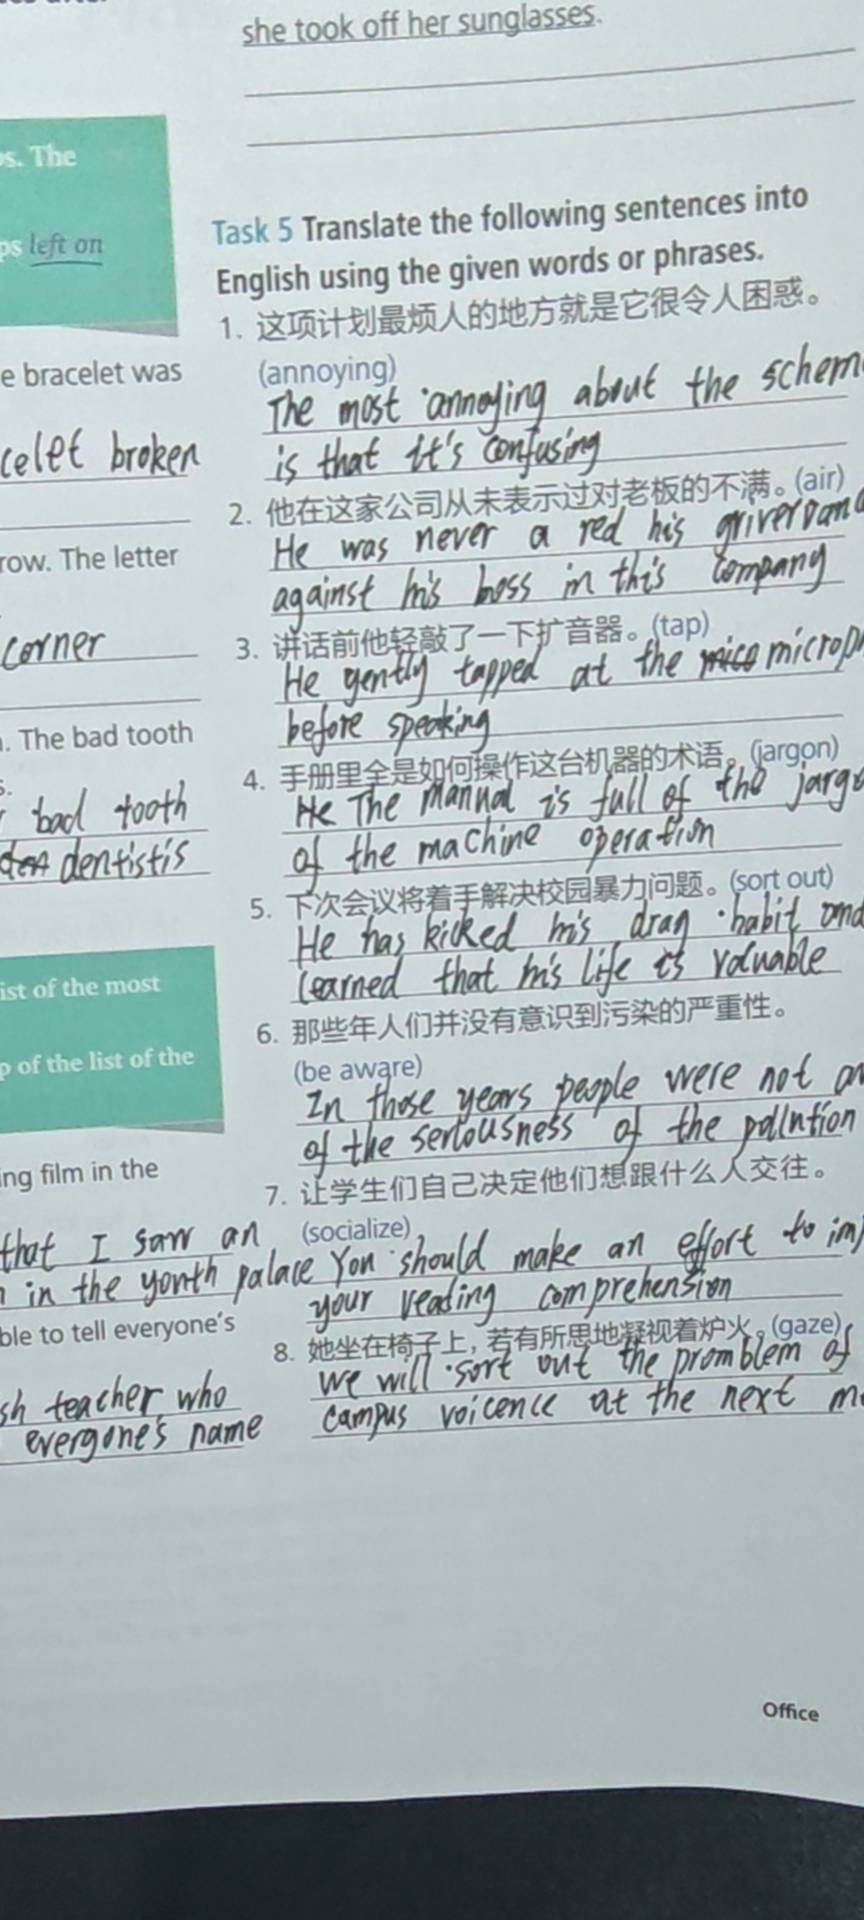 she took off her sunglasses.
s. The
ps left on
e bracelet was
celet broken
row. The letter
corner
. The bad tooth
s.
bad tooth
dentistis
ist of the most
p of the list of the
ing film in the
that I saw an
in the youth palace
ble to tell everyone's
sh teacher who
evergone's name
Task 5 Translate the following sentences into
English using the given words or phrases.
1. 这项计划最烦人的地方就是它很令人困惑。
(annoying)
The most annoying about the schem
is that it's confusing
2. 他在这家公司从未表示过对老板的不满。(air)
He was never a red his
against his boss in this company
3. 讲话前他轻敲了一下扩音器。(tap)
He gently tapped at the microph
before speaking
4. 手册里全是如何操作这台机器的术语。(jargon)
He The Mannal is full of the jargo
of the machine operation
5. 下次会议将着手解决校园暴力问题。(sort out)
He has kicked his drag habit and
learned that his life is valuable
6. 那些年人们并没有意识到污染的严重性。
(be aware)
In those years people were not
of the seriousness of the pollution
7. 让学生们自己决定他们想跟什么人交往。
(socialize)
You should make an effort to im
your reading comprehension
8. 她坐在椅子上，若有所思地凝视着炉火。(gaze)
we will sort out the promblem of
campus voicence at the next m
Office